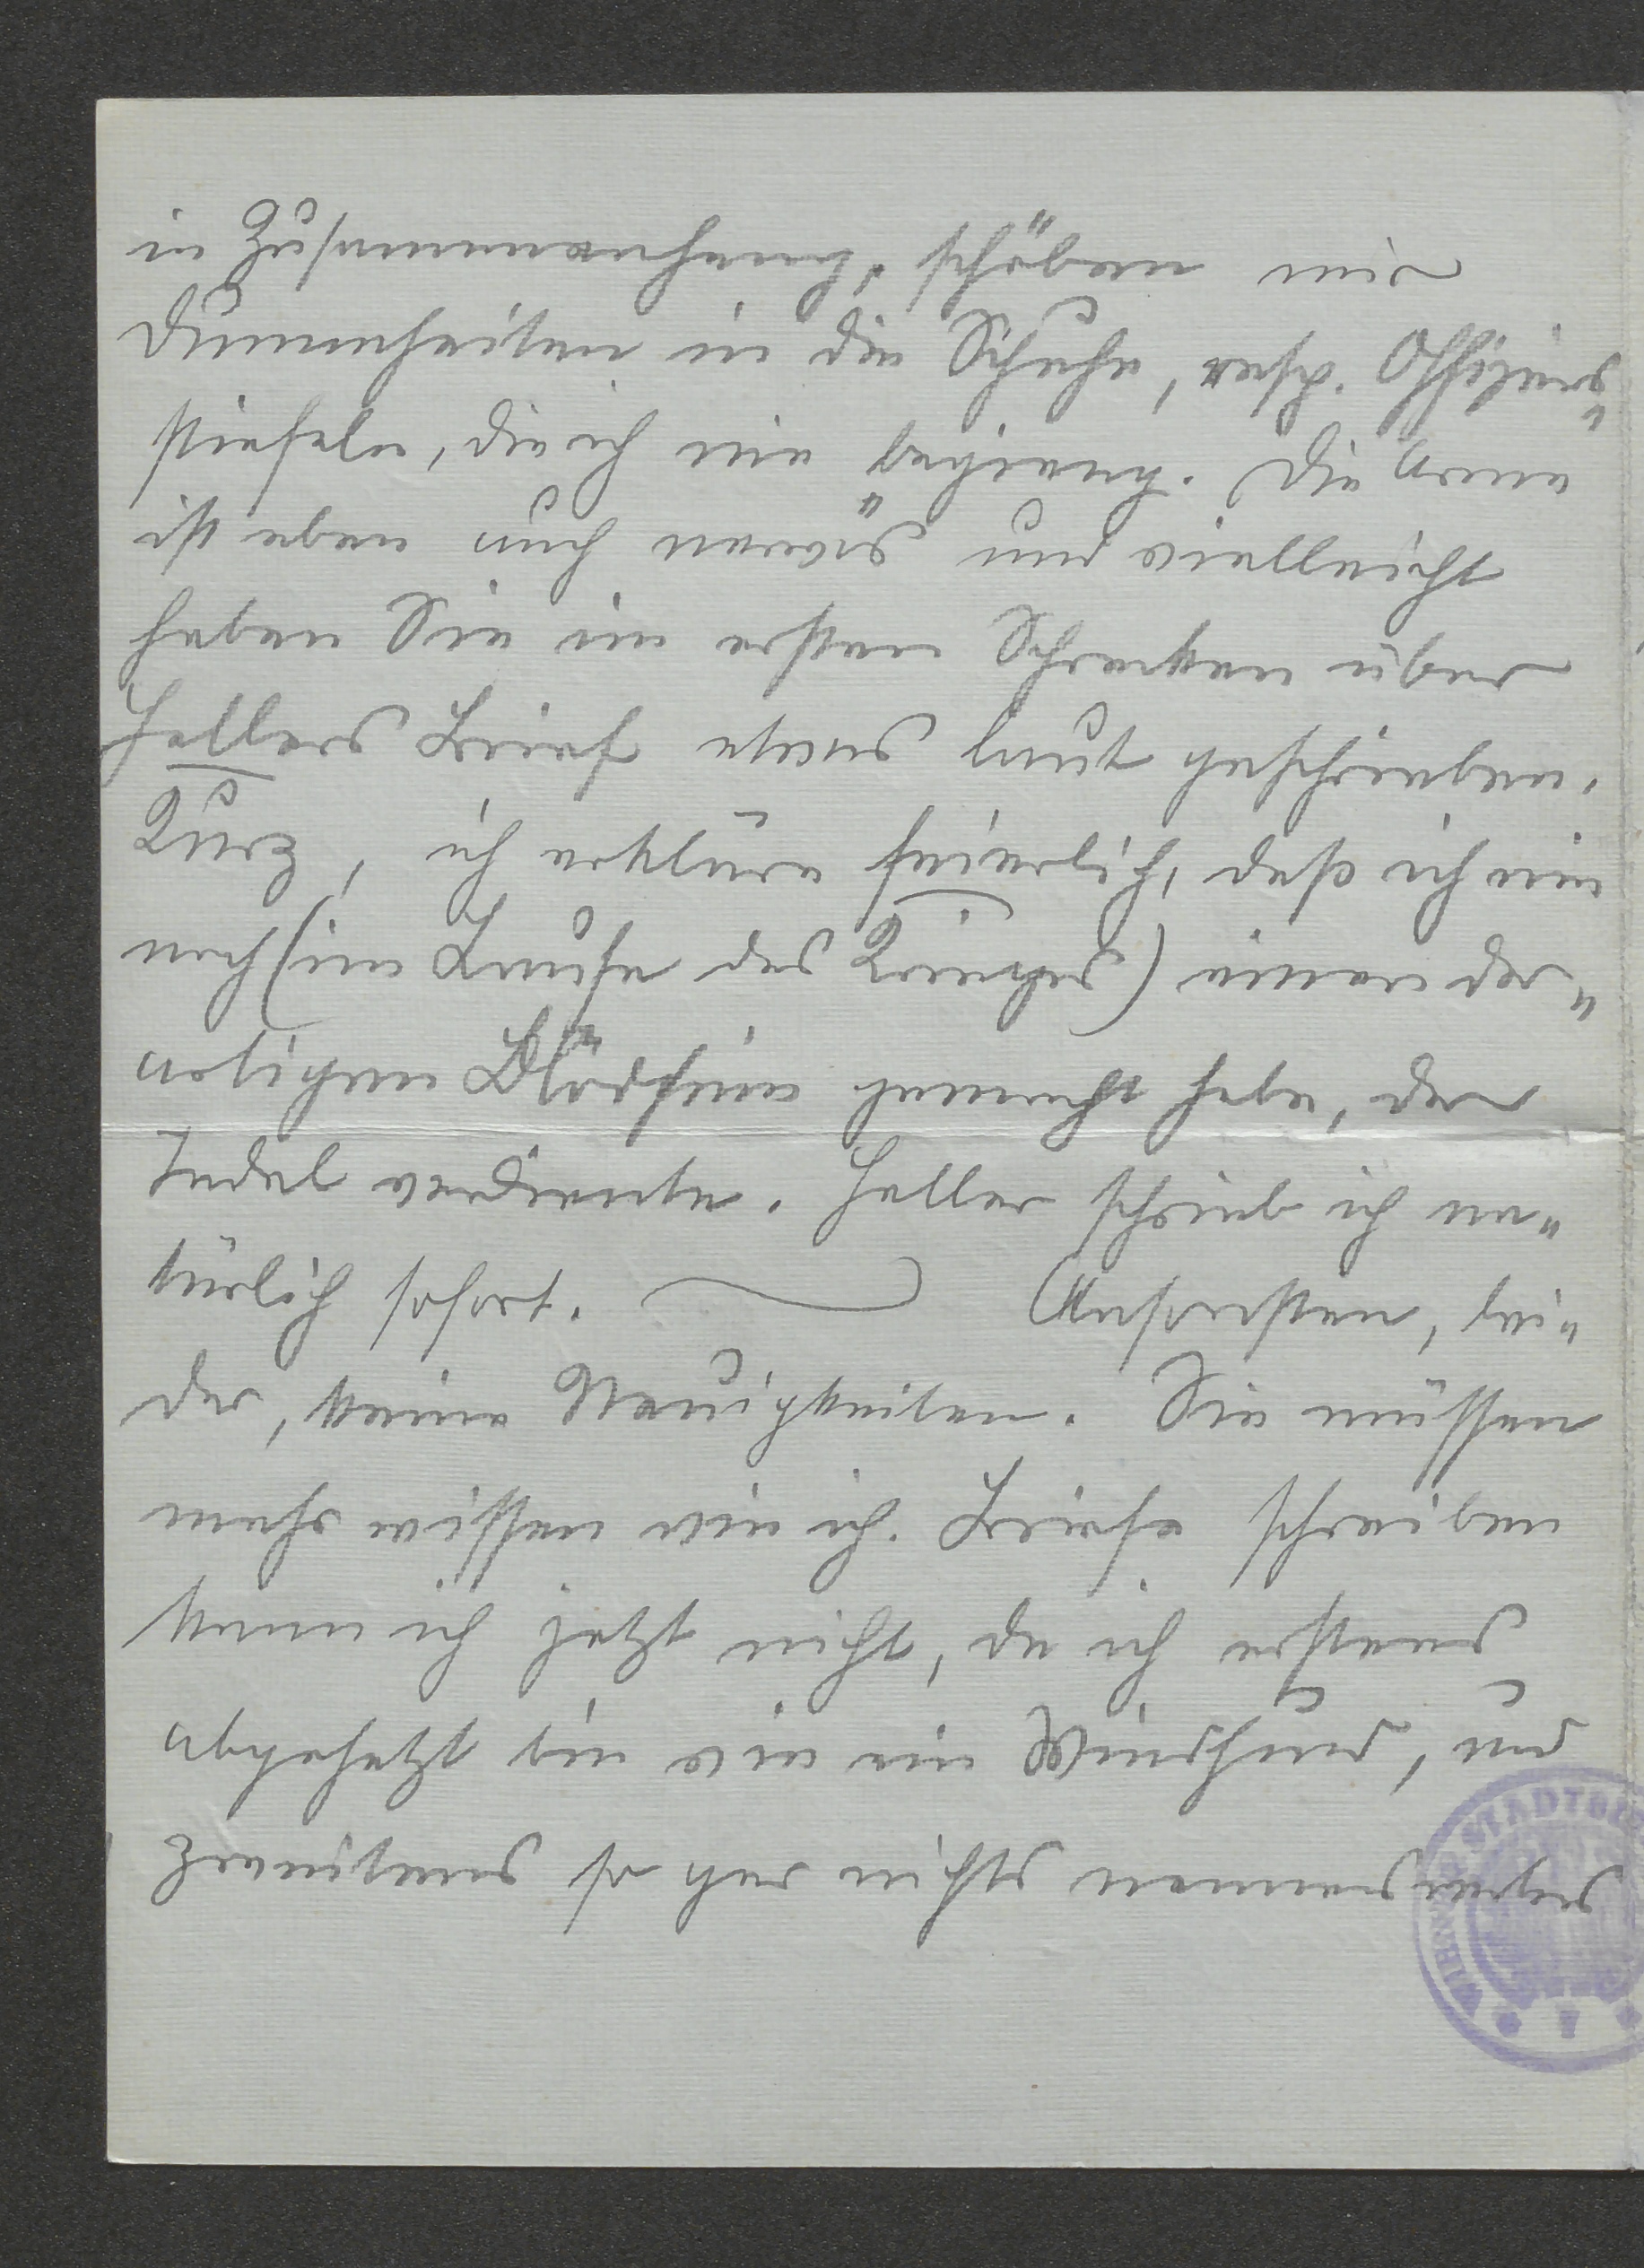 in Zusammenhang, schöben mir
Dummheiten in die Schuhe, resp. Offiziers-
stiefeln, die ich nie beging. Die Arme
ist eben auch nervös und vielleicht
haben Sie im ersten Schrecken über
Hallers Brief etwas laut geschrieben.
Kurz, ich erkläre feierlich, daß ich nie
noch (im Laufe des Krieges) einen der-
artigen Blödsinn gemacht habe, der
Tadel verdiente. Haller schrieb ich na-
türlich sofort. — Ansonsten, lei-
der, keine Neuigkeiten. Sie müssen
mehr wissen wie ich. Briefe schreiben
kann ich jetzt nicht, da ich erstens
abgehetzt bin wie ein Windhund, und
zweitens so gar nichts
WIENER STADTBI